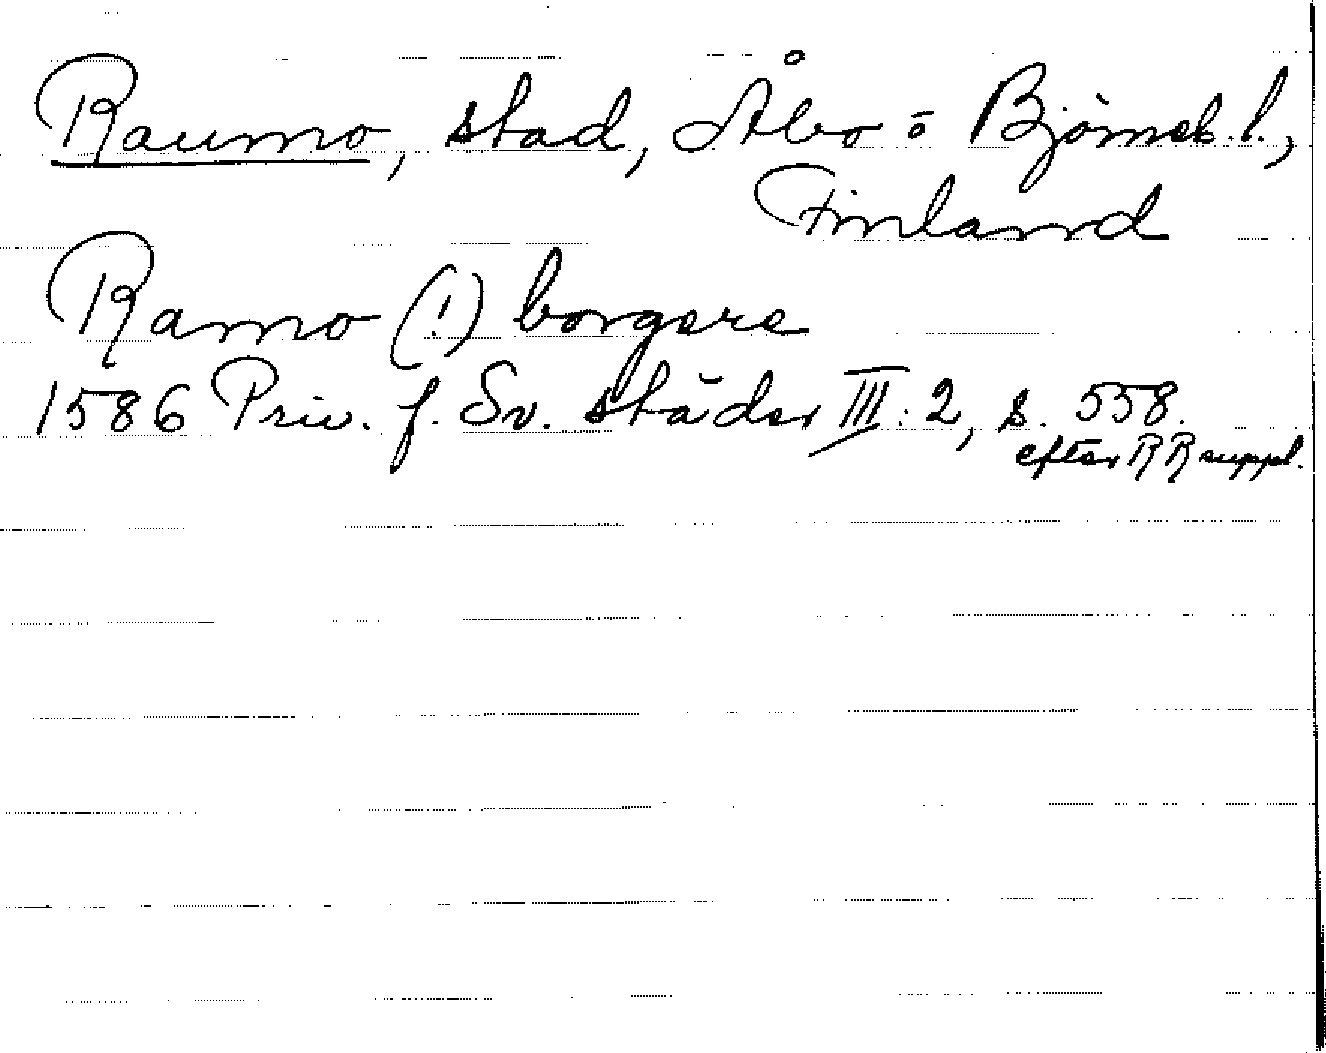 Raumo, stad, Åbo o Björneb. l.,
Finland
Ramo (!) borgare
1586 Priv. f. Sv. städer III: 2, s. 558.
efter RR suppl.